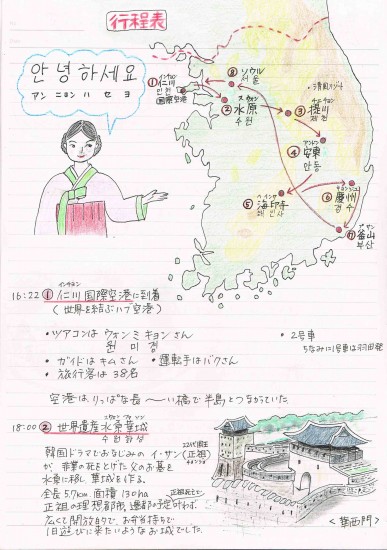 行程表
안녕하세요
アン ニョン ハ セ ヨ
① インチョン
仁川
인천
国際空港
⑧ ソウル
서울
② スウォン
水原
수원
③ 堤川
제천
④ アンドン
安東
안동
⑤ ヘインサ
海印寺
해인사
⑥
慶州
경주
⑦ プサン
釜山
부산
16:22 ① 仁川国際空港に到着
インチョン
(世界を結ぶハブ空港)
・ツアコンはウォンミキョンさん
원미경
・2号車
ちなみに1号車は羽田発
・ガイドはキムさん ・運転手はパクさん
・旅行客は38名
空港はりっぱな長〜い橋で半島とつながっていた。
18:00 ② 世界遺産水原華城
スウォン ファソン
수원화성
22代国王
韓国ドラマでおなじみのイ・サン(正祖)
チョンジョ
が、非業の死をとげた父のお墓を
水原に移し華城を作る。
全長5.7km 面積130ha
正祖の理想郷故、遷都の予定
広くて開放的で、お弁当持ちで
1日遊びに来たいようなお城でした。
<華西門>